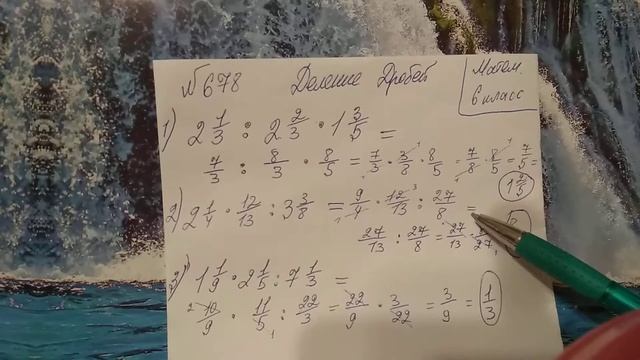 №678 Деление Дробей
Матем.
6 класс
1) 2 1/3 : 2 2/3 · 1 3/5 =
7/3 : 8/3 · 8/5 = 7/3 · 3/8 · 8/5 = 7/8 · 8/5 = 7/5 =
1 2/5
2) 2 1/4 · 12/13 : 3 3/8 = 9/4 · 12/13 : 27/8 =
27/13 : 27/8 = 27/13 ·
3) 1 1/9 · 2 1/5 : 7 1/3 =
10/9 · 11/5 : 22/3 = 22/9 · 3/22 = 3/9 = 1/3